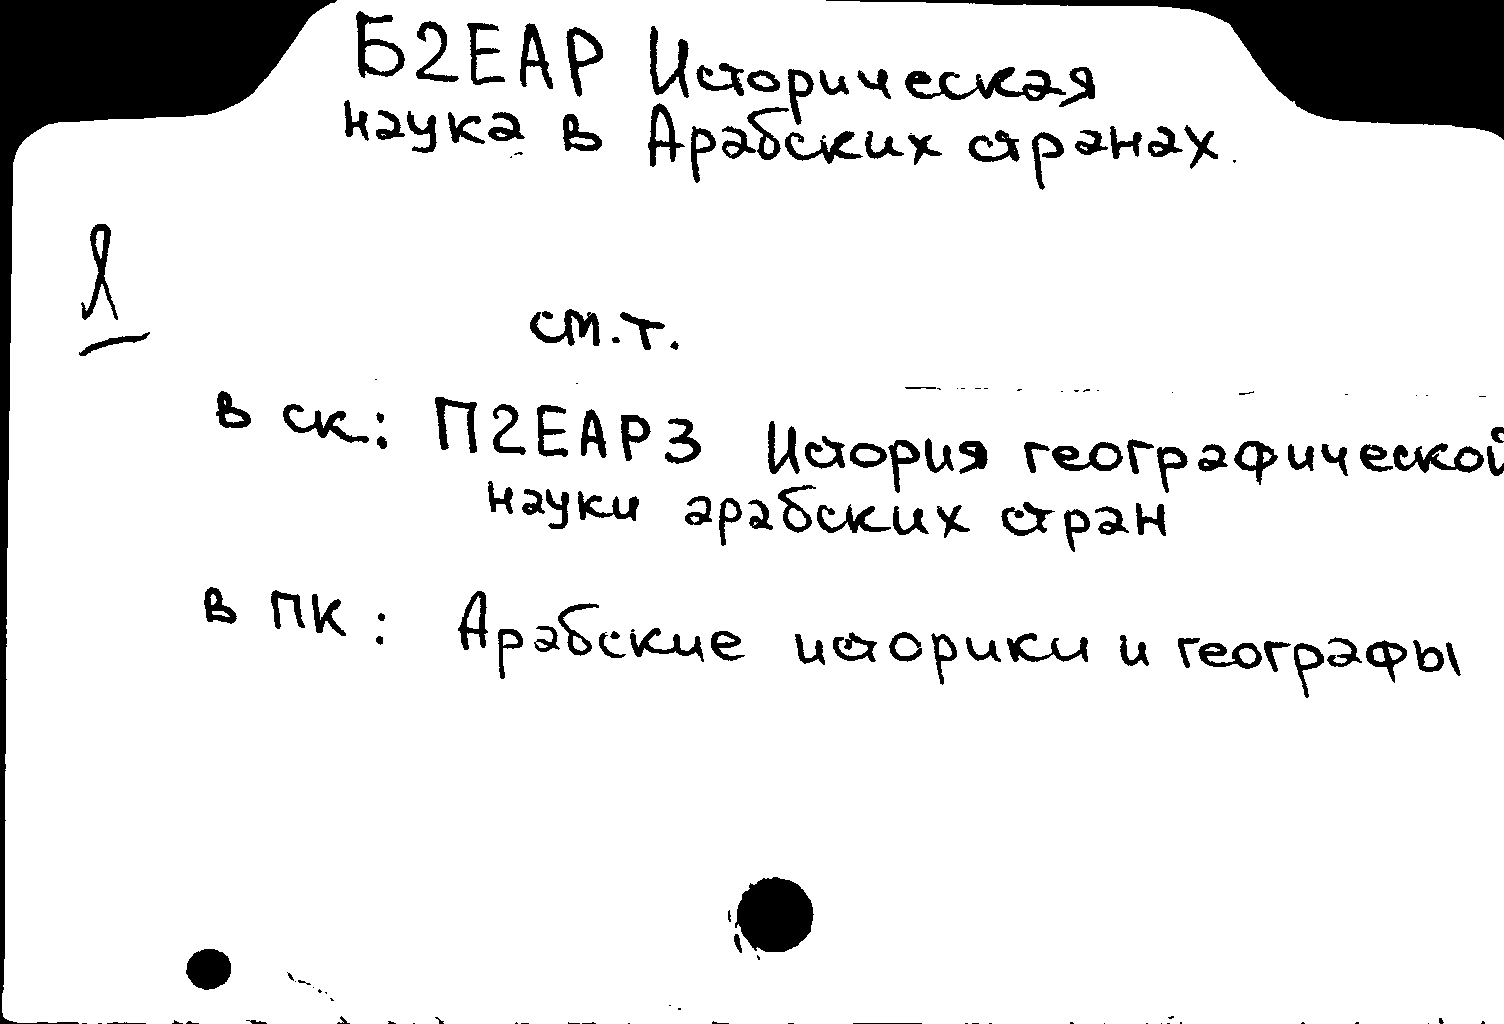 Б2ЕАР Историческая
наука в Арабских странах
см. т.
в ск: П2ЕАР3 История географической
науки арабских стран
в ПК: Арабские историки и географы